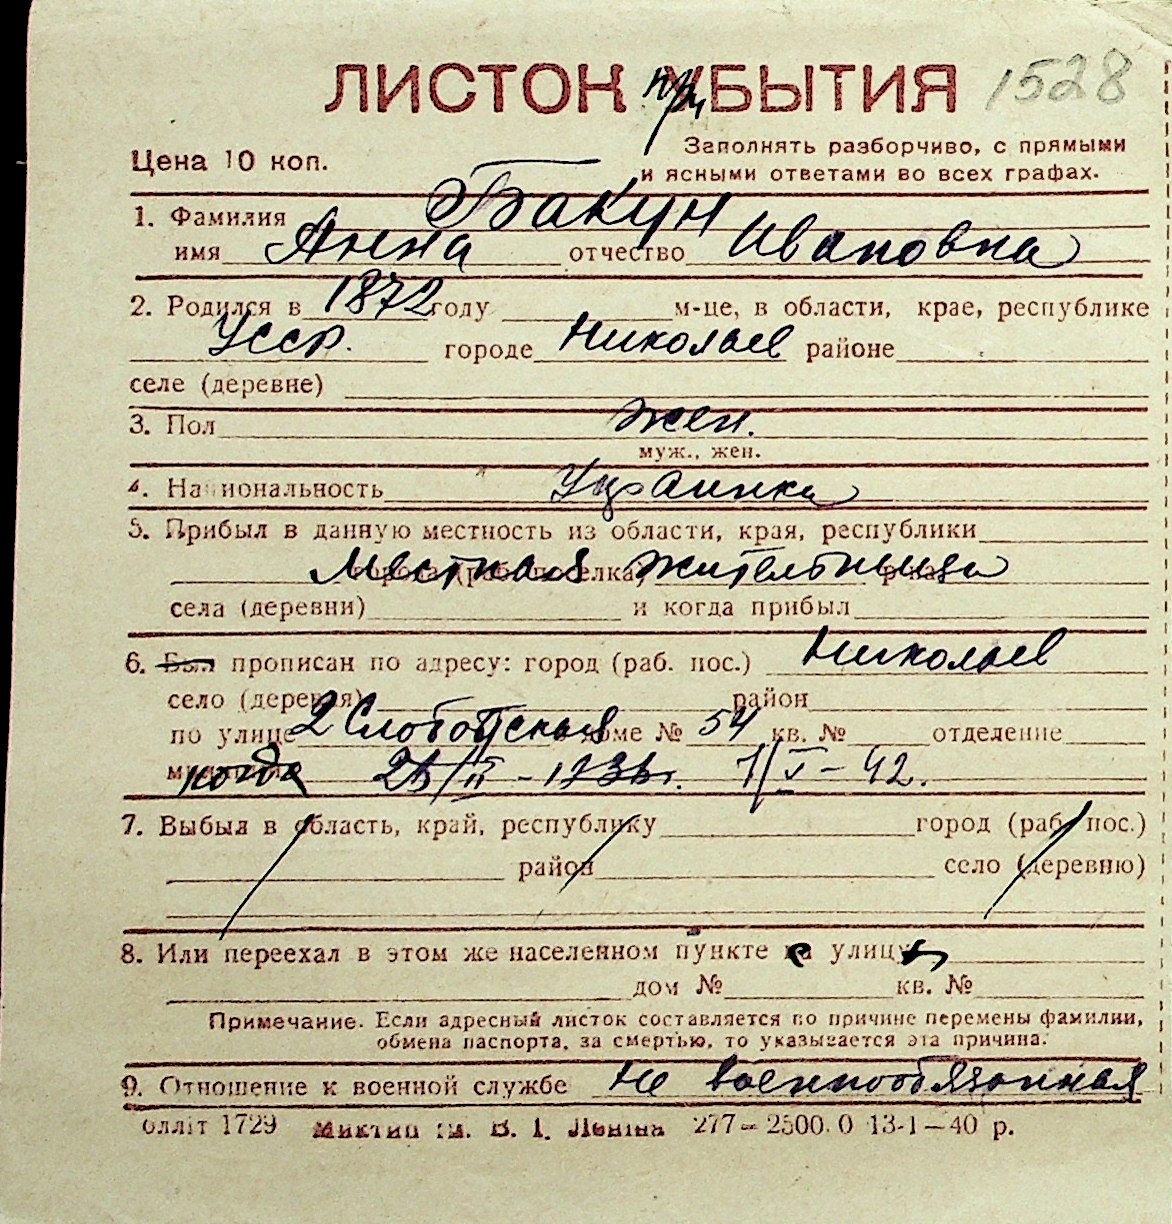 ЛИСТОК при УБЫТИЯ 1528
Цена 10 коп.
Заполнять разборчиво, с прямыми
и ясными ответами во всех графах.
1. Фамилия Бакун
имя Анна отчество Ивановна
2. Родился в 1872 году м-це, в области, крае, республике
Усср. городе Николаев районе
селе (деревне)
3. Пол жен.
муж., жен.
4. Национальность Украинка
5. Прибыл в данную местность из области, края, республики
Местная жительница
села (деревни) и когда прибыл
6. Был прописан по адресу: город (раб. пос.) Николаев
село (деревня) район
по улице 2 Слободская доме № 54 кв. № отделение
когда 1/V-42.
7. Выбыл в область, край, республику город (раб. пос.)
район село (деревню)
8. Или переехал в этом же населенном пункте с улицы
дом № кв. №
Примечание. Если адресный листок составляется по причине перемены фамилии,
обмена паспорта, за смертью, то указывается эта причина.
9. Отношение к военной службе Не военнообязанная
олліт 1729 Миктип ім. В. І. Леніна 277—2500.0 13-1—40 р.